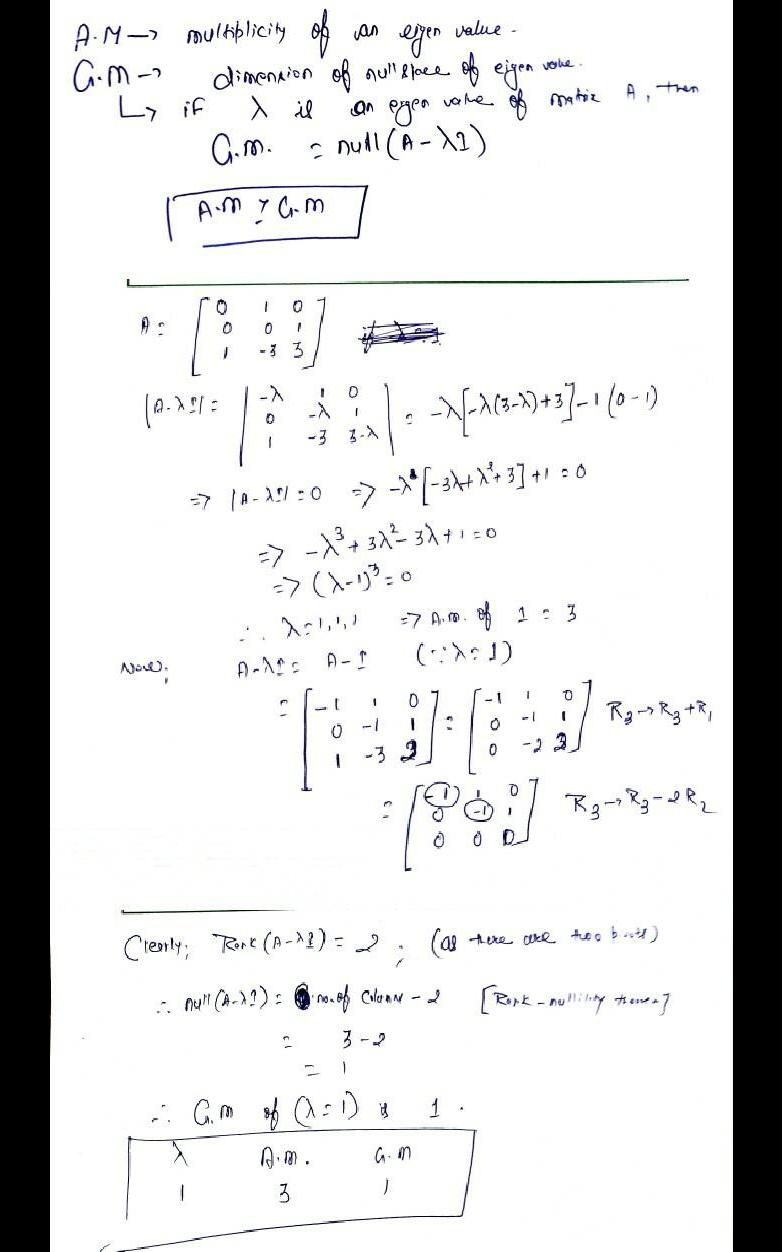 A.M → multiplicity of an eigen value.
G.M → dimension of null space of eigen value.
↳ if λ is an eigen value of matrix A, then
G.M. = null(A - λI)
A.M ≥ G.M
A = [0 1 0; 0 0 1; 1 -3 3]
|A-λI| = |-λ 1 0; 0 -λ 1; 1 -3 3-λ| = -λ[-λ(3-λ)+3] -1(0-1)
=> |A-λI| = 0 => -λ[-3λ+λ²+3]+1 = 0
=> -λ³ + 3λ² - 3λ + 1 = 0
=> (λ-1)³ = 0
∴ λ = 1,1,1 => A.M. of 1 = 3
Now; A-λI = A-I (∵ λ = 1)
= [-1 1 0; 0 -1 1; 1 -3 2] = [-1 1 0; 0 -1 1; 0 -2 2] R₃→R₃+R₁
= [-1 1 0; 0 -1 1; 0 0 0] R₃→R₃-2R₂
Clearly; Rank(A-λI) = 2; (as there are two)
∴ null(A-λI) = no. of column - 2 [Rank-nullity]
= 3-2
= 1
∴ G.M of (λ=1) is 1.
λ A.M. G.M
1 3 1